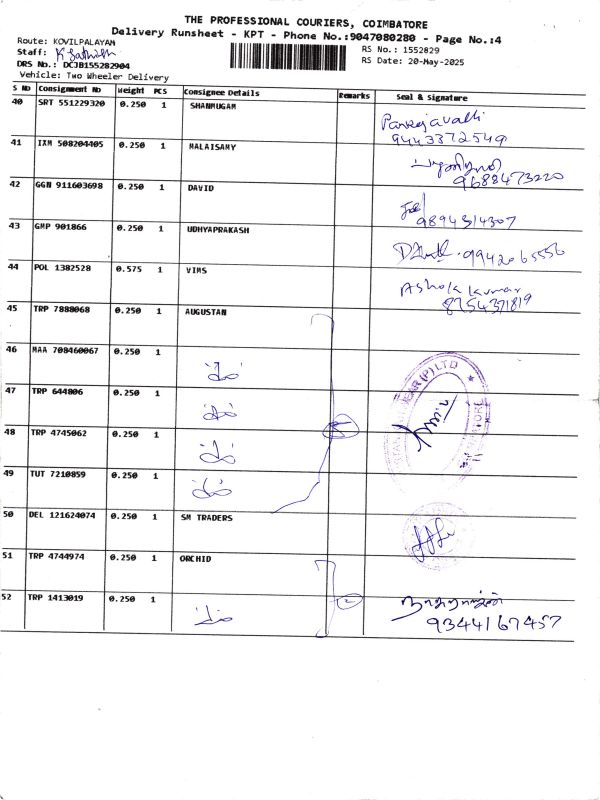 THE PROFESSIONAL COURIERS, COIMBATORE
Delivery Runsheet - KPT - Phone No.:9047080280 - Page No.:4
Route: KOVILPALAYAM
RS No.: 1552829
Staff: K Sathish
RS Date: 20-May-2025
DRS No.: DCJB155282904
Vehicle: Two Wheeler Delivery
S No Consignment No Weight PCS Consignee Details Remarks Seal & Signature
40 SRT 551229320 0.250 1 SHANMUGAM
9443372549
41 IXM 508204405 0.250 1 MALAISAMY
9688473220
42 GGN 911603698 0.250 1 DAVID
9894314307
43 GMP 901866 0.250 1 UDHYAPRAKASH
9942065556
44 POL 1382528 0.575 1 VIMS Ashok kumar
8754371819
45 TRP 7888068 0.250 1 AUGUSTAN
46 MAA 708460067 0.250 1
47 TRP 644806 0.250 1
48 TRP 4745062 0.250 1
49 TUT 7210859 0.250 1
50 DEL 121624074 0.250 1 SM TRADERS
51 TRP 4744974 0.250 1 ORCHID
52 TRP 1413019 0.250 1 2
9344167457